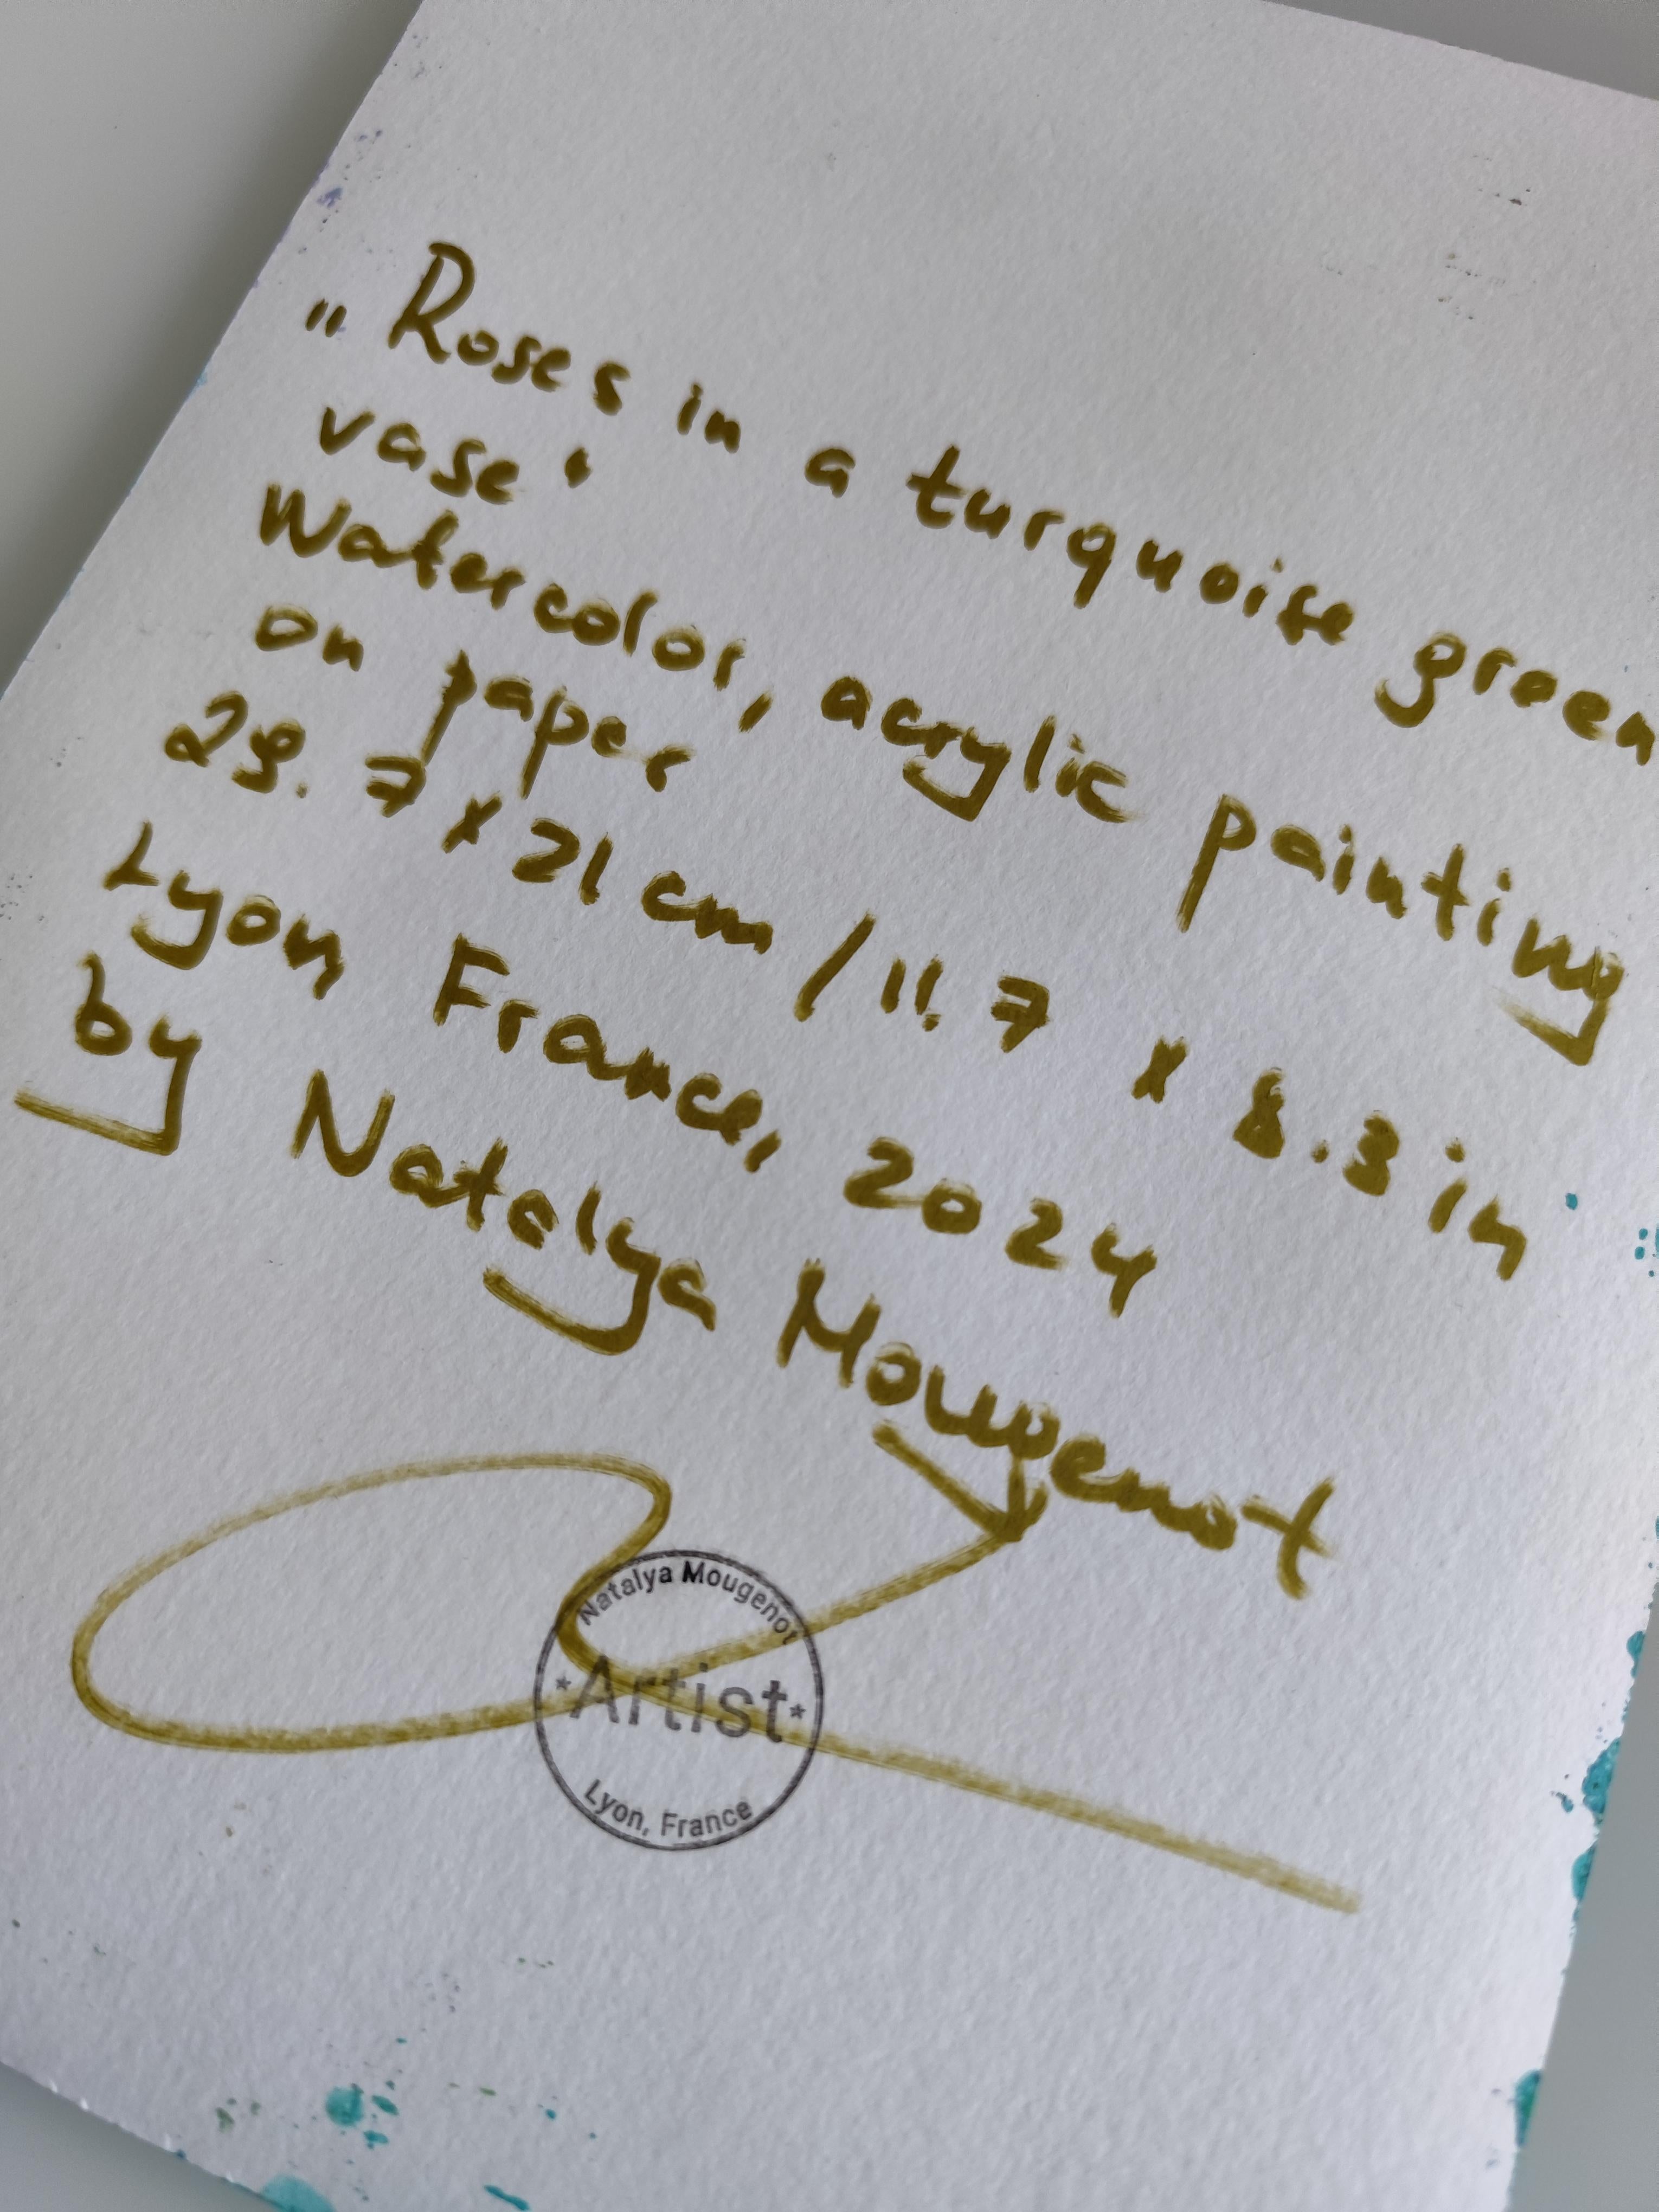 "Roses in a turquoise green
vase"
Watercolor, acrylic painting
on paper
29.7 x 21 cm / 11.7 x 8.3 in
Lyon France, 2024
by Natalya Mougenot
Natalya Mougenot
*Artist*
Lyon, France